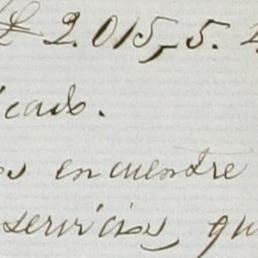 2.015,5.
icado.
os encuentre
servicios, qu